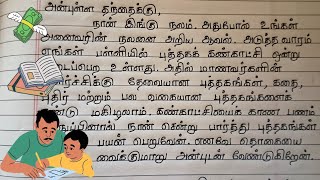 அன்புள்ள தந்தைக்கு,
நான் இங்கு நலம். அதுபோல் உங்கள்
அனைவரின் நலனை அறிய ஆவல். அடுத்த வாரம்
எங்கள் பள்ளியில் புத்தகக் கண்காட்சி ஒன்று
நடைபெற உள்ளது. அதில் மாணவர்களின்
தேவையான புத்தகங்கள், கதை,
மற்றும் பல வகையான புத்தகங்களைக்
மகிழலாம். கண்காட்சியைக் காண பணம்
நான் சென்று பார்த்து புத்தகங்கள்
பயன் பெறுவேன். எனவே தொகையை
வைக்குமாறு அன்புடன் வேண்டுகிறேன்.